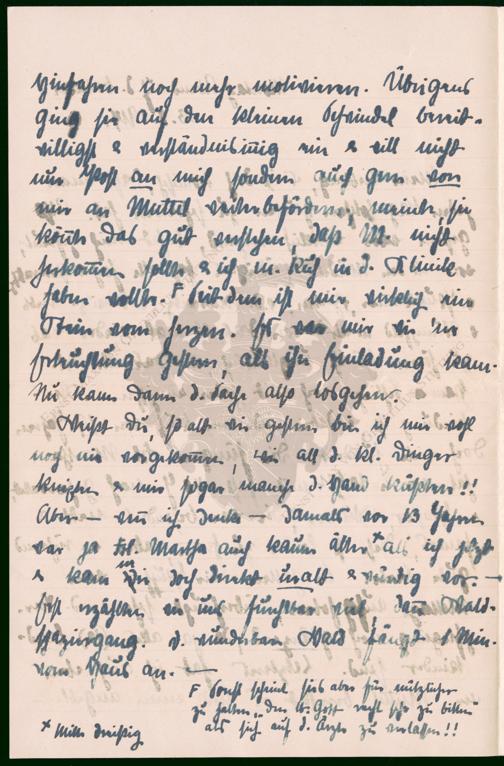 Hinfahren noch mehr motivieren. Übrigens
ging sie auf den kleinen Schwindel bereit-
willigst & verständnisinnig ein & will nicht
nur Post an mich sondern auch gern von
mir an Muttel weiterbefördern, meinte, sie
könnte das gut verstehen, daß M. nicht
herkommen sollte & ich m. Ruh in d. Klinik
haben wollte. F Seitdem ist mir wirklich ein
Stein vom Herzen. Es war mir wie 'ne
Erleuchtung gestern, als ihre Einladung kam.
Nu kann dann d. Sache also losgehen.
Weißt du, so alt wie gestern bin ich mir wohl
noch nie vorgekommen, wie all d. kl. Dinger
knixten & mir sogar manche d. Hand küßten!!
Aber – wenn ich denke – damals vor 13 Jahren
war ja Frl. Martha auch kaum älter * als ich jetzt
& kam mir doch direkt uralt & würdig vor. –
Erst erzählten wir uns furchtbar viel, dann Wald-
spaziergang. D. wunderbare Wald fängt 1 Min.
vom Haus an. –
F Sonst scheint sie's aber für nützlicher
zu halten, den lb. Gott recht sehr zu bitten
als sich auf d. Ärzte zu verlassen!!
* Mitte dreißig